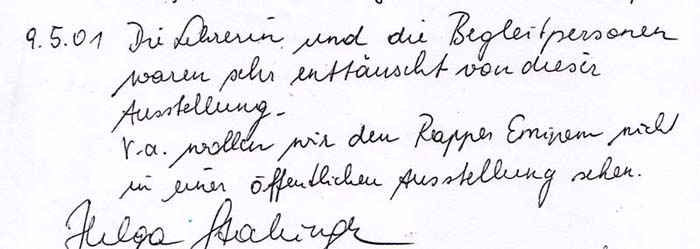 9.5.01 Die Lehrerin und die Begleitpersonen
waren sehr enttäuscht von dieser
Ausstellung.
V.a. wollen wir den Rapper Eminem nicht
in einer öffentlichen Ausstellung sehen.
Helga